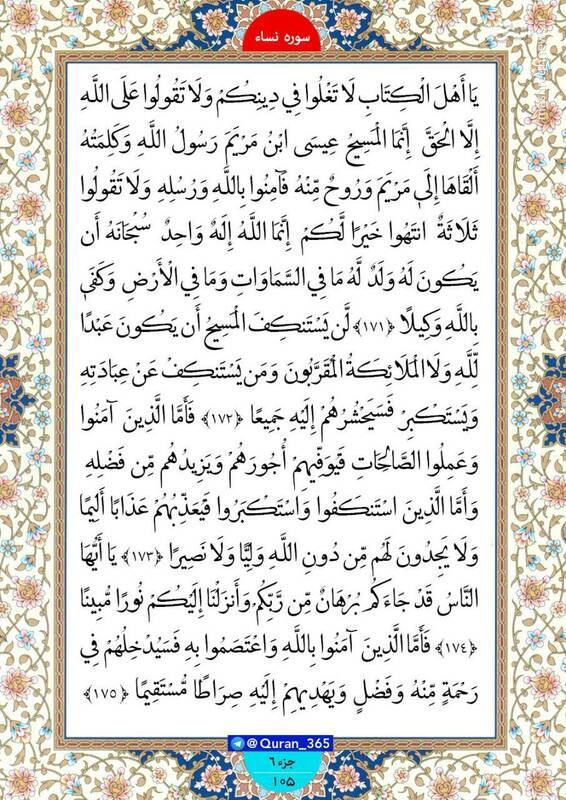 سوره نساء
يَا أَهْلَ الْكِتَابِ لَا تَغْلُوا فِي دِينِكُمْ وَلَا تَقُولُوا عَلَى اللَّهِ
إِلَّا الْحَقَّ إِنَّمَا الْمَسِيحُ عِيسَى ابْنُ مَرْيَمَ رَسُولُ اللَّهِ وَكَلِمَتُهُ
أَلْقَاهَا إِلَى مَرْيَمَ وَرُوحٌ مِّنْهُ فَآمِنُوا بِاللَّهِ وَرُسُلِهِ وَلَا تَقُولُوا
ثَلَاثَةٌ انتَهُوا خَيْرًا لَّكُمْ إِنَّمَا اللَّهُ إِلَهٌ وَاحِدٌ سُبْحَانَهُ أَن
يَكُونَ لَهُ وَلَدٌ لَّهُ مَا فِي السَّمَاوَاتِ وَمَا فِي الْأَرْضِ وَكَفَى
بِاللَّهِ وَكِيلًا ﴿١٧١﴾ لَّن يَسْتَنكِفَ الْمَسِيحُ أَن يَكُونَ عَبْدًا
لِّلَّهِ وَلَا الْمَلَائِكَةُ الْمُقَرَّبُونَ وَمَن يَسْتَنكِفْ عَنْ عِبَادَتِهِ
وَيَسْتَكْبِرْ فَسَيَحْشُرُهُمْ إِلَيْهِ جَمِيعًا ﴿١٧٢﴾ فَأَمَّا الَّذِينَ آمَنُوا
وَعَمِلُوا الصَّالِحَاتِ فَيُوَفِّيهِمْ أُجُورَهُمْ وَيَزِيدُهُم مِّن فَضْلِهِ
وَأَمَّا الَّذِينَ اسْتَنكَفُوا وَاسْتَكْبَرُوا فَيُعَذِّبُهُمْ عَذَابًا أَلِيمًا
وَلَا يَجِدُونَ لَهُم مِّن دُونِ اللَّهِ وَلِيًّا وَلَا نَصِيرًا ﴿١٧٣﴾ يَا أَيُّهَا
النَّاسُ قَدْ جَاءَكُم بُرْهَانٌ مِّن رَّبِّكُمْ وَأَنزَلْنَا إِلَيْكُمْ نُورًا مُّبِينًا
﴿١٧٤﴾ فَأَمَّا الَّذِينَ آمَنُوا بِاللَّهِ وَاعْتَصَمُوا بِهِ فَسَيُدْخِلُهُمْ فِي
رَحْمَةٍ مِّنْهُ وَفَضْلٍ وَيَهْدِيهِمْ إِلَيْهِ صِرَاطًا مُّسْتَقِيمًا ﴿١٧٥﴾
@Quran_365
جزء ۶
۱۰۵